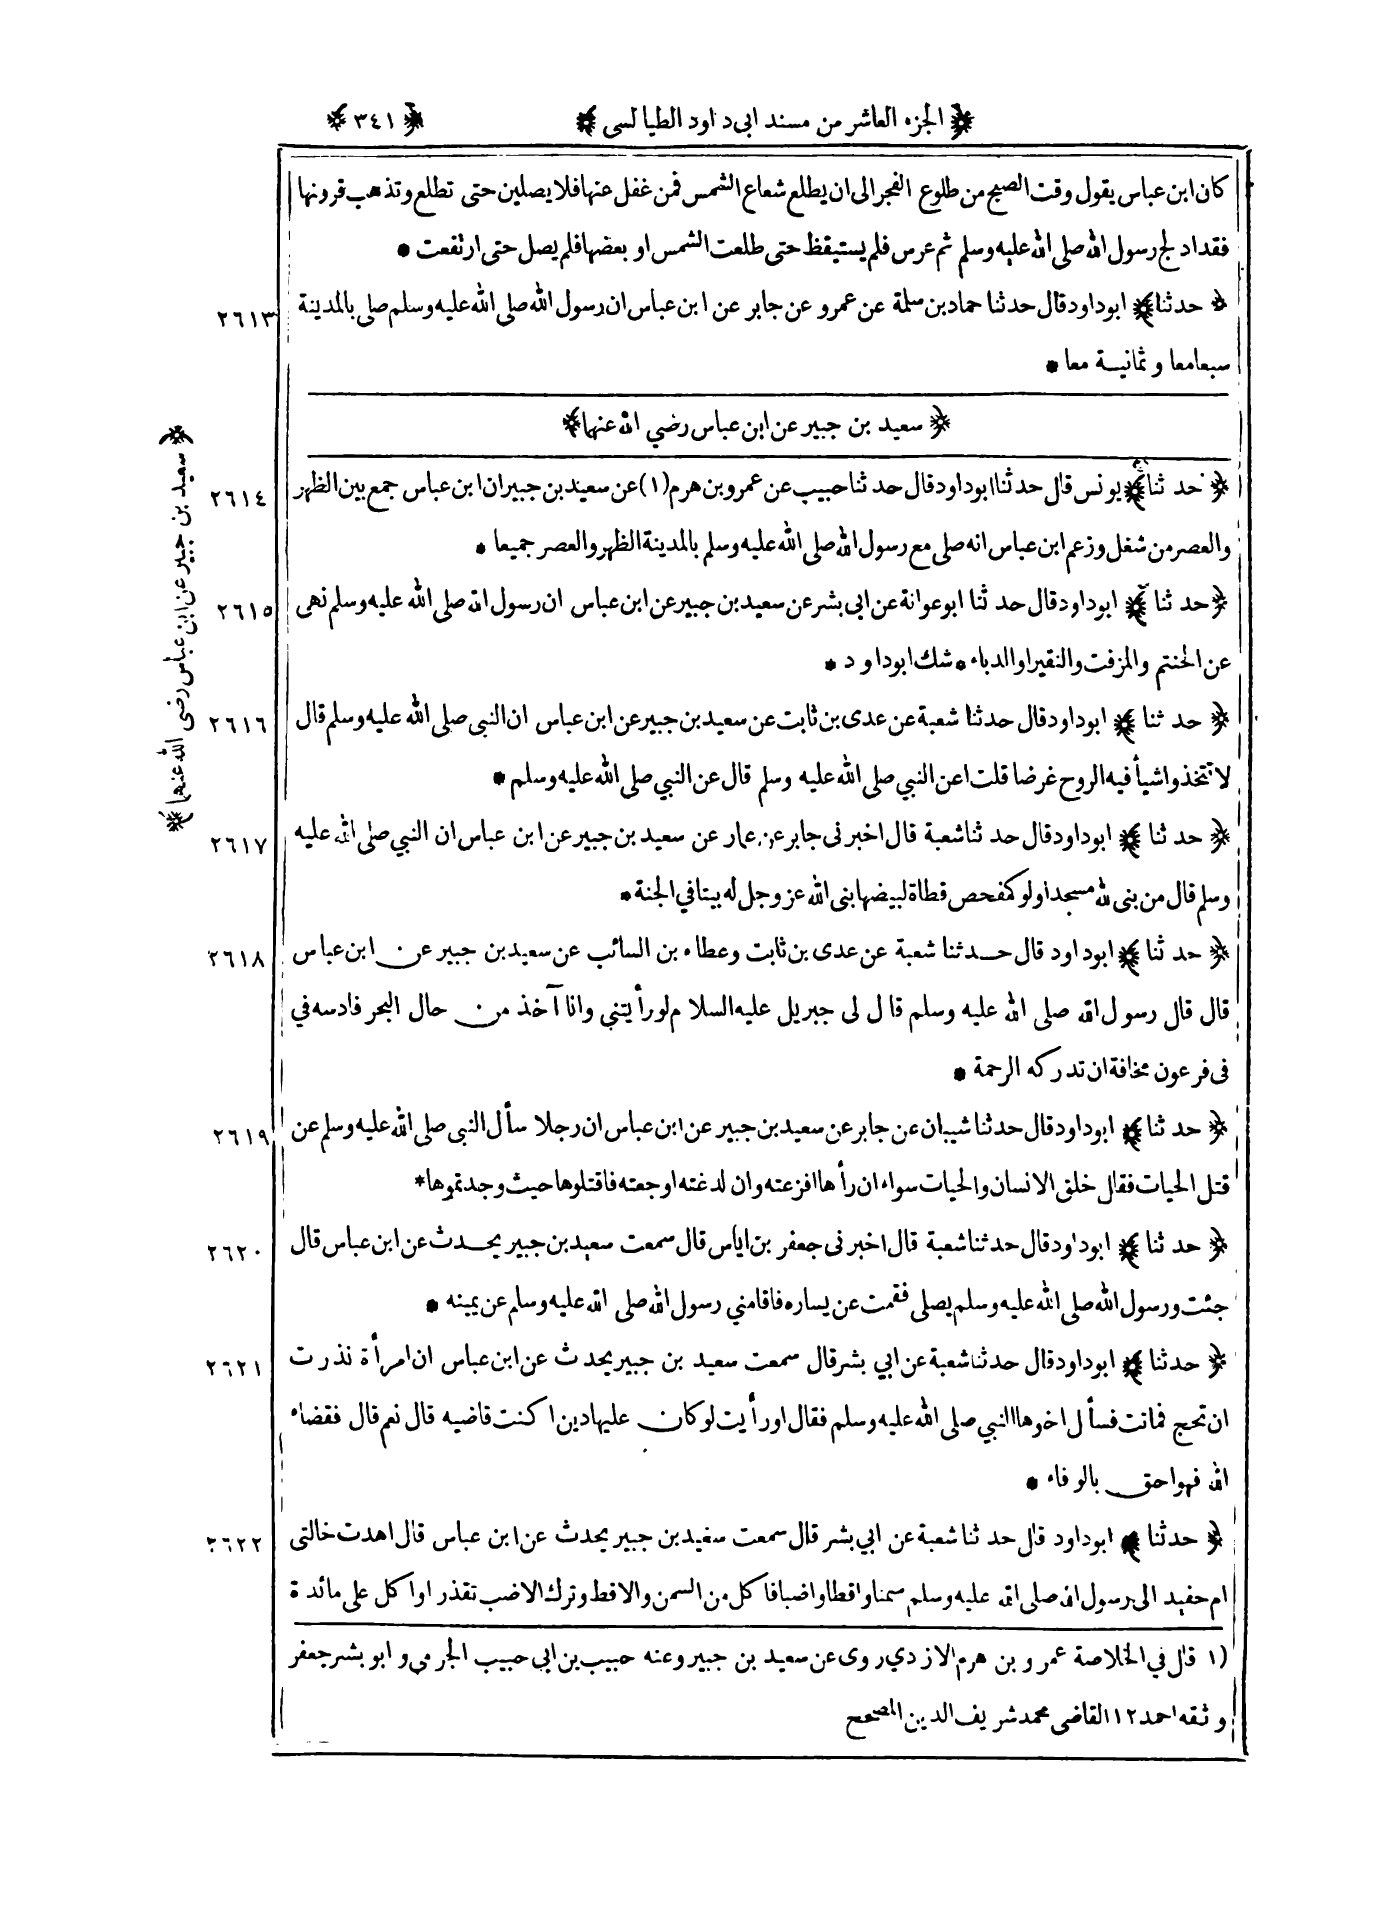 ﴿ الجزء العاشر من مسند ابى داود الطيالسى ﴾ ﴿ ٣٤١ ﴾
كان ابن عباس يقول وقت الصبح من طلوع الفجر الى ان يطلع شعاع الشمس فمن غفل عنها فلا يصلين حتى تطلع وتذهب قرونها
فقد ادلج رسول الله صلى الله عليه وسلم ثم عرس فلم يستيقظ حتى طلعت الشمس او بعضها فلم يصل حتى ارتفعت *
﴿ حدثنا ﴾ ابو داود قال حدثنا حماد بن سلمة عن عمرو عن جابر عن ابن عباس ان رسول الله صلى الله عليه وسلم صلى بالمدينة ٢٦١٣
سبعا معا و ثمانية معا *
﴿ سعيد بن جبير عن ابن عباس رضي الله عنهما ﴾
﴿ حدثنا ﴾ يونس قال حدثنا ابو داود قال حدثنا حبيب عن عمرو بن هرم (١) عن سعيد بن جبير ان ابن عباس جمع بين الظهر ٢٦١٤
والعصر من شغل وزعم ابن عباس انه صلى مع رسول الله صلى الله عليه وسلم بالمدينة الظهر والعصر جميعا *
﴿ حدثنا ﴾ ابو داود قال حدثنا ابو عوانة عن ابى بشر عن سعيد بن جبير عن ابن عباس ان رسول الله صلى الله عليه وسلم نهى ٢٦١٥
عن الحنتم والمزفت والنقير او الدباء * شك ابو داود *
﴿ حدثنا ﴾ ابو داود قال حدثنا شعبة عن عدى بن ثابت عن سعيد بن جبير عن ابن عباس ان النبى صلى الله عليه وسلم قال ٢٦١٦
لا تتخذوا شيأ فيه الروح غرضا قلت اعن النبي صلى الله عليه وسلم قال عن النبي صلى الله عليه وسلم *
﴿ حدثنا ﴾ ابو داود قال حدثنا شعبة قال اخبرنى جابر عن عمار عن سعيد بن جبير عن ابن عباس ان النبي صلى الله عليه ٢٦١٧
وسلم قال من بنى لله مسجدا ولو كمفحص قطاة لبيضها بنى الله عز وجل له بيتا في الجنة *
﴿ حدثنا ﴾ ابو داود قال حدثنا شعبة عن عدى بن ثابت وعطاء بن السائب عن سعيد بن جبير عن ابن عباس ٢٦١٨
قال قال رسول الله صلى الله عليه وسلم قال لى جبريل عليه السلام لو رأيتني وانا آخذ من حال البحر فادسه في
فى فرعون مخافة ان تدركه الرحمة *
﴿ حدثنا ﴾ ابو داود قال حدثنا شيبان عن جابر عن سعيد بن جبير عن ابن عباس ان رجلا سأل النبى صلى الله عليه وسلم عن ٢٦١٩
قتل الحيات فقال خلق الانسان والحيات سواء ان رأها افزعته وان لدغته اوجعته فاقتلوها حيث وجدتموها *
﴿ حدثنا ﴾ ابو داود قال حدثنا شعبة قال اخبرنى جعفر بن اياس قال سمعت سعيد بن جبير يحدث عن ابن عباس قال ٢٦٢٠
جئت ورسول الله صلى الله عليه وسلم يصلى فقمت عن يساره فاقامني رسول الله صلى الله عليه وسلم عن يمينه *
﴿ حدثنا ﴾ ابو داود قال حدثنا شعبة عن ابي بشر قال سمعت سعيد بن جبير يحدث عن ابن عباس ان امرأة نذرت ٢٦٢١
ان تحج فماتت فسأل اخوها النبي صلى الله عليه وسلم فقال اورأيت لو كان عليها دين اكنت قاضيه قال نعم قال فقضاء
الله فهو احق بالوفاء *
﴿ حدثنا ﴾ ابو داود قال حدثنا شعبة عن ابي بشر قال سمعت سعيد بن جبير يحدث عن ابن عباس قال اهدت خالتى ٢٦٢٢
ام حفيد الى رسول الله صلى الله عليه وسلم سمنا واقطا واضبا فاكل من السمن والاقط وترك الاضب تقذرا واكل على مائدة
(١ قال في الخلاصة عمرو بن هرم الازدي روى عن سعيد بن جبير وعنه حبيب بن ابى حبيب الجرمي و ابو بشر جعفر
وثقه احمد ١٢ القاضى محمد شريف الدين المصحح
﴿ سعيد بن جبير عن ابن عباس رضى الله عنهما ﴾